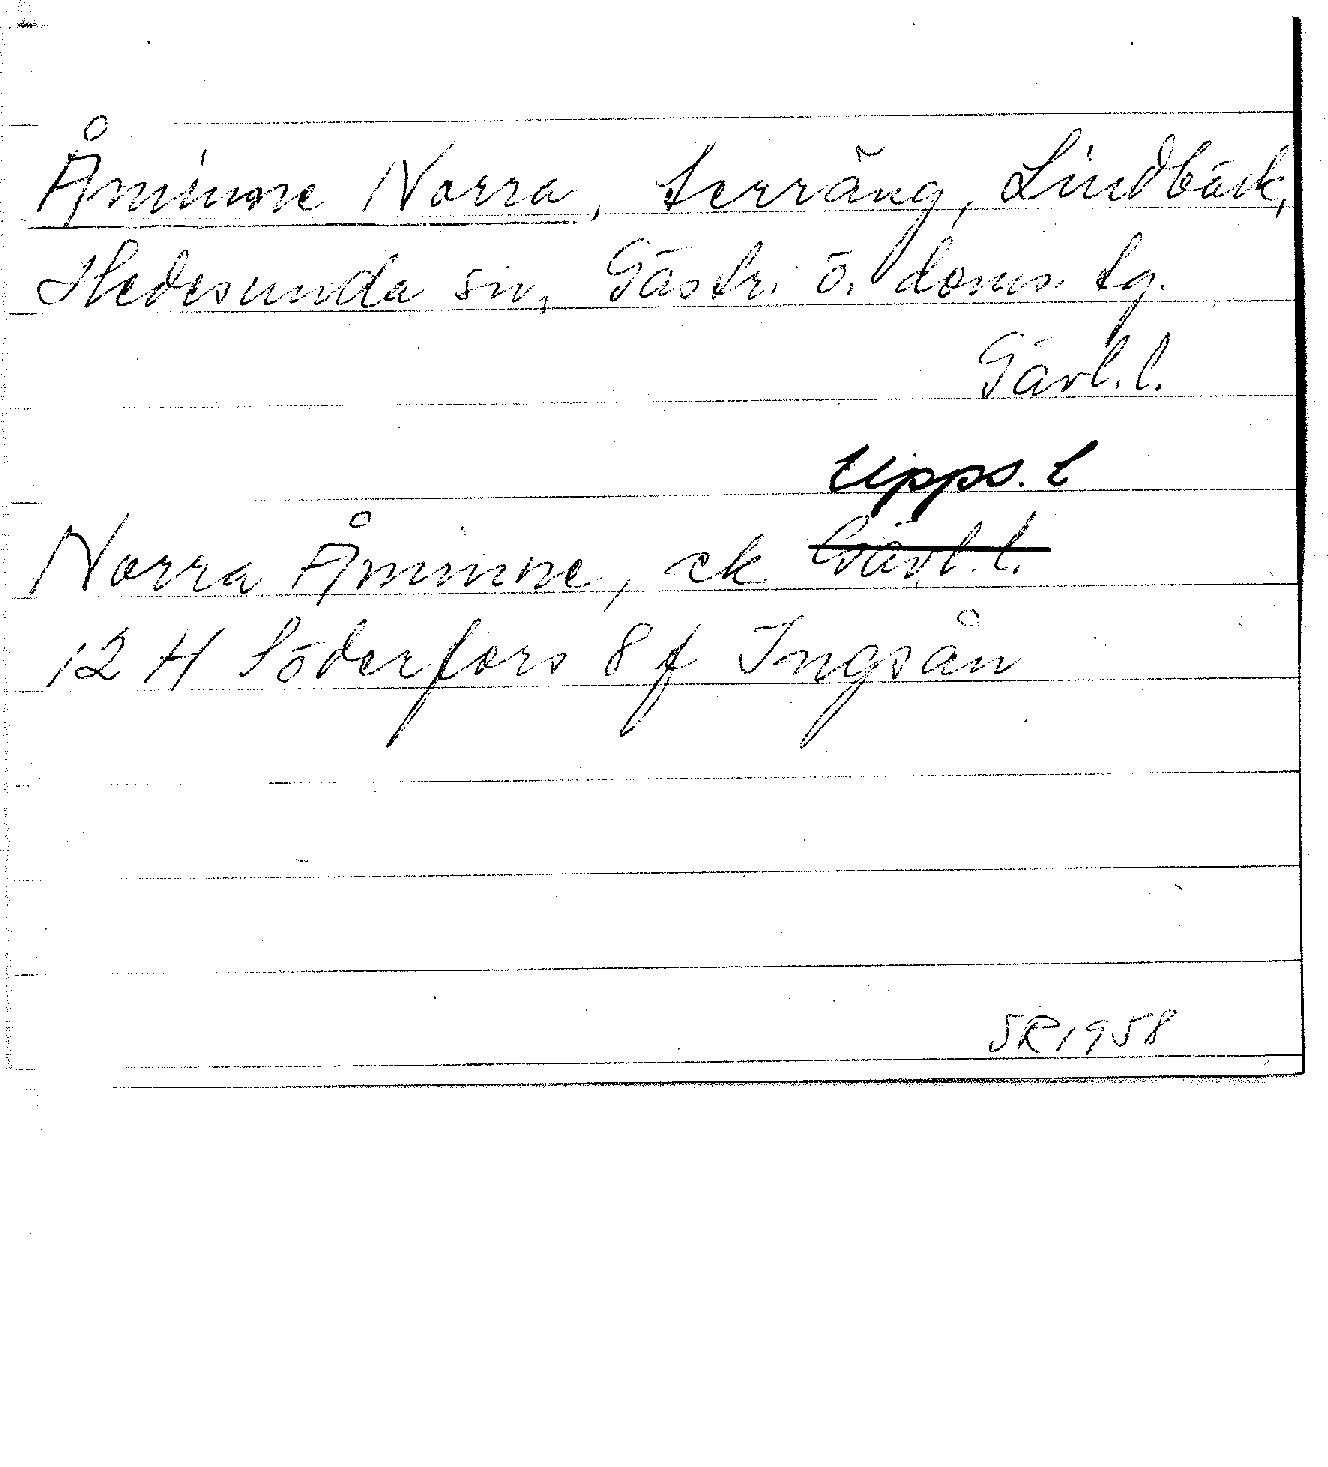 Åminne Norra, terräng, Lindbäck,
Hedesunda sn, Gästr. ö. doms. tg.
Gävl. l.
Upps. l
Norra Åminne, ek Gävl. l.
12 H Söderfors 8 f Ingsån
SR 1958